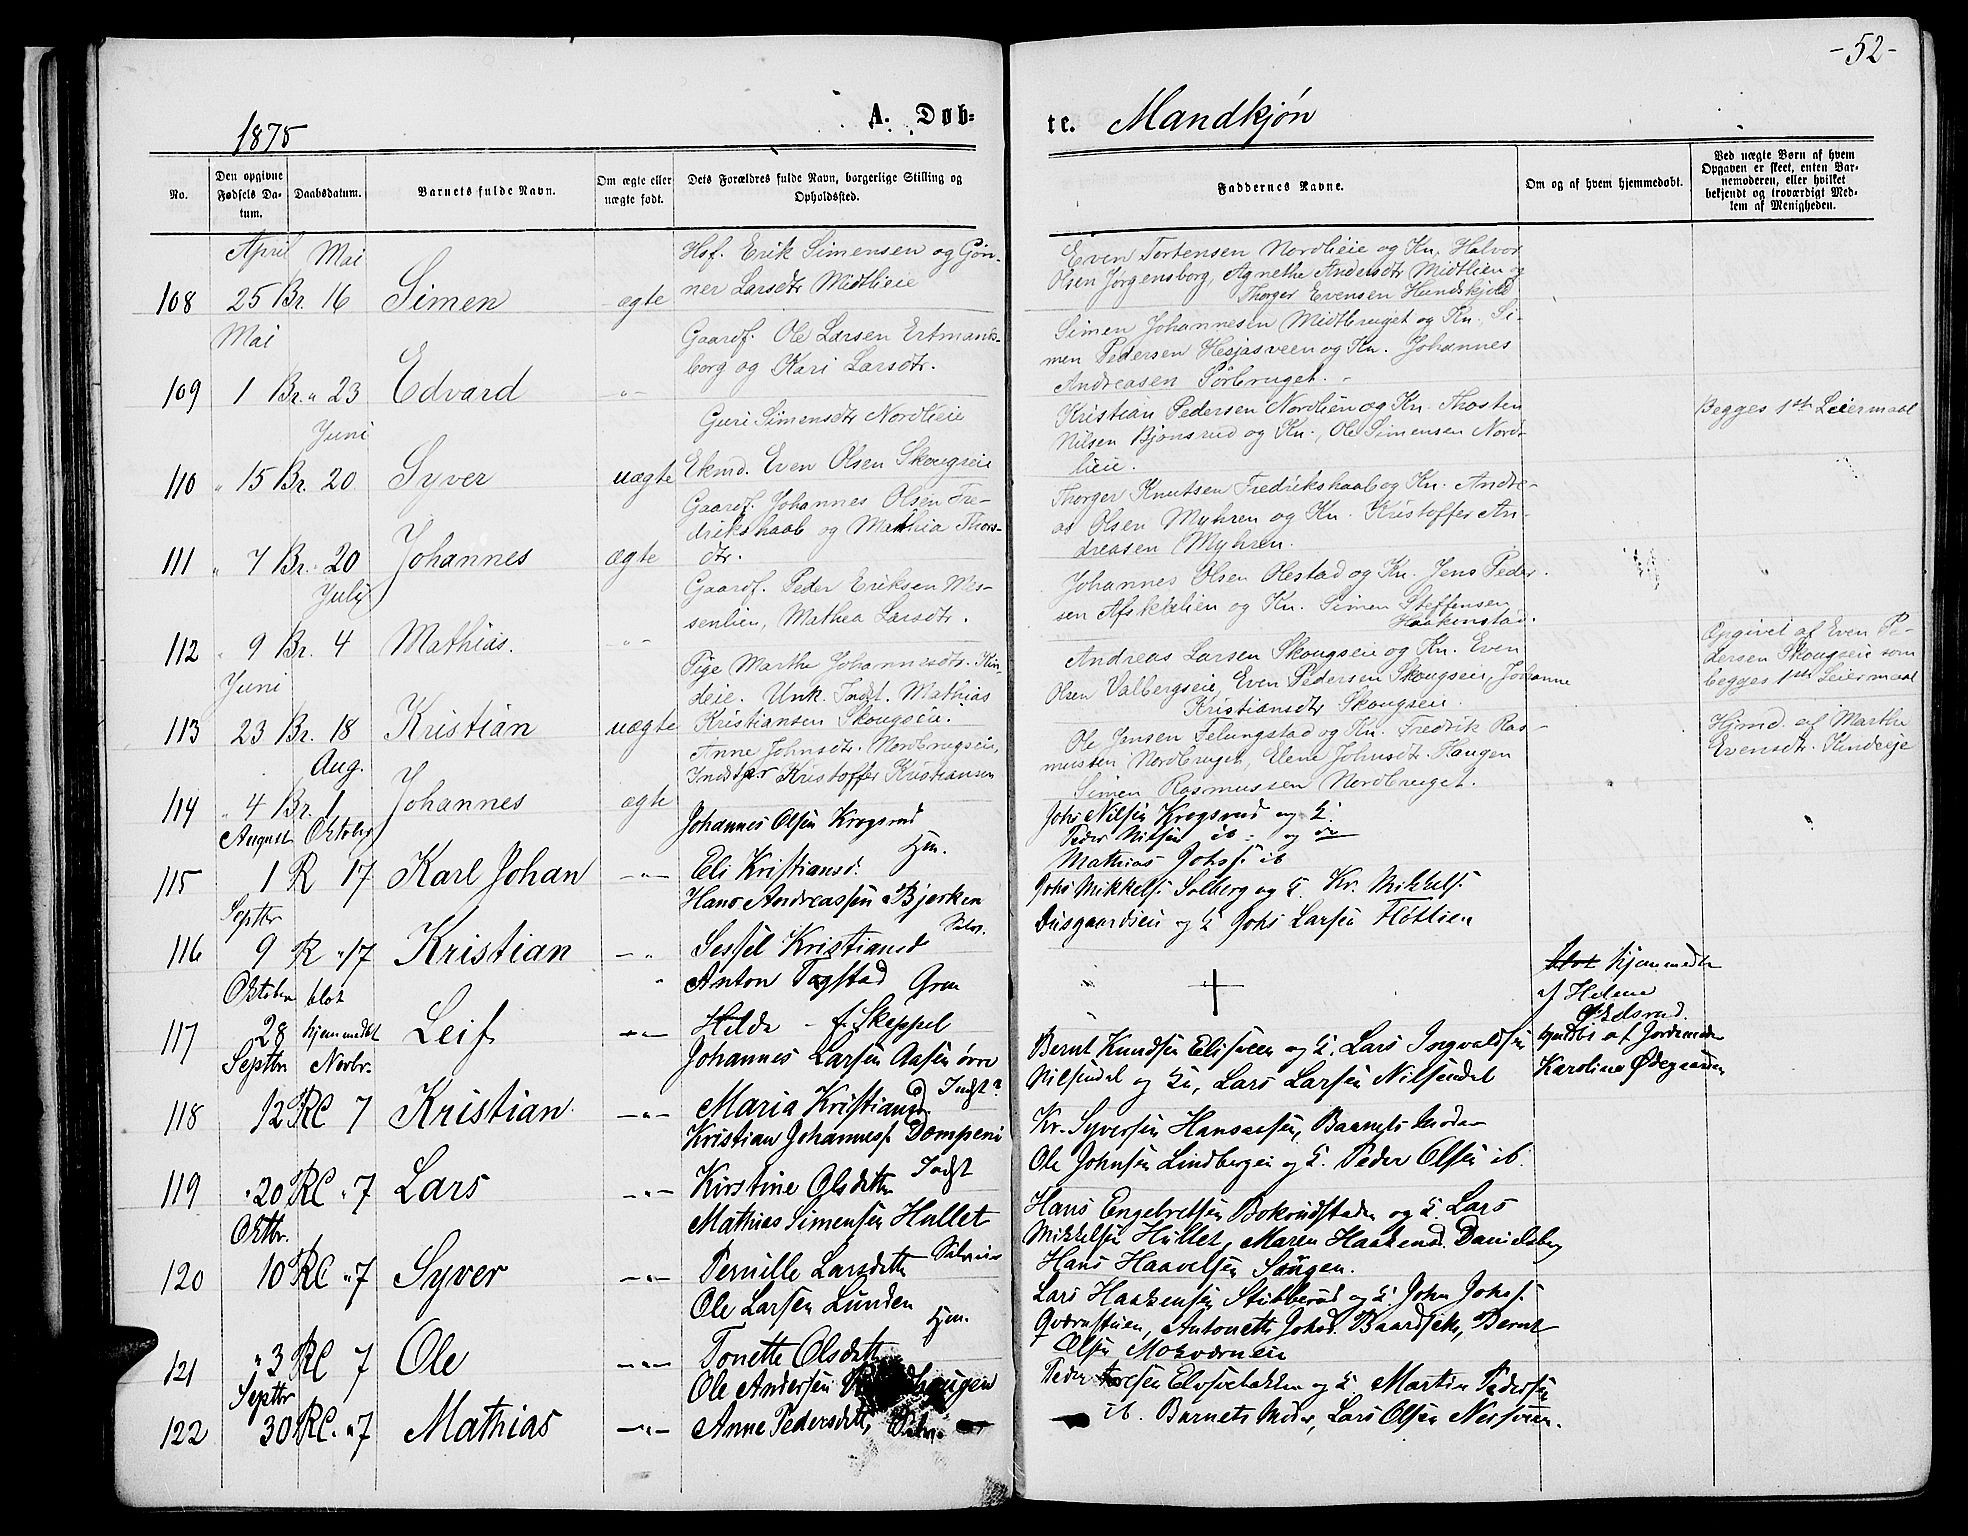 -52-
1875
A. Døb-
te. Mandkjøn
No.
Den opgivne Fødsels Datum.
Daabsdatum.
Barnets fulde Navn.
Om ægte eller uægte født.
Dets Forældres fulde Navn, borgerlige Stilling og Opholdssted.
Faddernes Navne.
Om og af hvem hjemmedøbt.
Ved uægte Børn af hvem Opgaven er skeet, enten Barnemoderen, eller hvilket bekjendt og troværdigt Medlem af Menigheden.
April Mai
108 25 Br. 16 Simen ægte
Hsf. Erik Simensen og Gøn-
ner Larsdtr Midtlieie
Even Tortensen Nordlieie og Kn. Halvor
Olsen Jørgensborg, Agnethe Andersdtr Midtlien og
Thorger Evensen Hundskjold
Mai
109 1 Br. " 23 Edvard -"-
Gaardf. Ole Larsen Ertmands-
borg og Kari Larsdtr.
Simen Johannesen Midtbruget og Kn. Si-
men Pedersen Hesjasveen og Kn. Johannes
Andreasen Sørbruget. -
Juni
110 " 15 Br. 20 Syver uægte
Guri Simensdtr Nordlieie
Ekmd. Even Olsen Skougseie
Kristian Pedersen Nordlien og Kn. Thosten
Nilsen Bjønsrud og Kn., Ole Simensen Nord-
lieie.
Begges 1ste Leiermaal
111 " 7 Br. " 20 Johannes ægte
Gaardf. Johannes Olsen Fre-
drikshaab og Mathia Thors-
dtr.
Thorger Knutsen Fredrikshaab og Kn. Andre-
as Olsen Myhren og Kn. Kristoffer An-
dreasen Myhren.
Juli
112 " 9 Br. 4 Mathias. "-
Gaardf. Peder Eriksen Mes-
senlien, Mathea Larsdtr.
Johannes Olsen Olestad og Kn. Jens Peder-
sen Afskiklien og Kn. Simen Steffensen
Haakenstad.
Juni
113 23 Br. 18 Kristian uægte
Pige Marthe Johannesdtr. Kin-
deie. Unk. Indst. Mathias
Kristiansen Skougseie.
Andreas Larsen Skougseie og Kn. Even
Olsen Valbergseie, Even Pedersen Skougseie, Johanne
Kristiansdtr Skougseie.
Opgivet af Even Pe-
dersen Skougseie som
begges 1ste Leiermaal
Aug.
114 " 4 Br. 1 Johannes ægte
Anne Johnsdtr. Nordbrugseie,
Indstør Kristoffer Kristiansen
Ole Jensen Felungstad og Kn. Fredrik Ras-
mussen Nordbruget, Elene Johnsdtr. Haugen
Simen Rasmussen Nordbruget.
Hjmd. af Marthe
Evensdtr. Kindeie
August Oktober
115 1 R 17 Karl Johan -"-
Johannes Olsen Krogsrud
Hjm.
Eli Kristiansd.
Johs Nilsen Krogsrud og K.
Peder Nilsen ib: og do
Mathias Johs. ib
Septbr
116 9 R " 17 Kristian - "
Hans Andreassen Bjerken
Selvei.
Sessel Kristiansd
Johs Mikkels. Solberg og K Kr. Mikkels.
Dusgaardseie og K Johs Larsen Fløttien
Oktober blot
117 28 hjemmedbt Leif -"-
Anton Tagstad Grm
Hilda - f. Skeppel
" +
blot hjemmedbt
af Helene
Ødsrud.
Septbr Novbr.
118 12 RC 7 Kristian -"-
Johannes Larsen Aasen øvre
Indst?
Maria Kristiansd.
Bernt Knudsen Elisveen og K. Lars Ingvaldsen
Nilsendal og Kn, Lars Larsen Nilsendal
hjmdbt af Jordemoder
Karoline Ødegaarden
119 " 20 RC " 7 Lars -"-
Kristian Johanness. Dompeni
Indst
Kirstine Olsdatter
Kr. Syversen Hansessen, Barnets Moder
Ole Johnsen Lindbergeie og K. Peder Olsen ib.
Oktbr.
120 10 RC " 7 Syver -"-
Mathias Simensen Hullet
Selveier
Pernille Larsdatter
Hans Engebretsen Bokrudstaden og K. Lars
Mikkelsen Hullet, Maren Haakensd. Danielsby
Hans Haavelsen Sangen.
121 " 3 RC 7 Ole -"-
Ole Larsen Lunden
Hjm.
Tonette Olsdatt
Lars Haakensen Stibberud og K John Johs.
Qværnstuen, Antonette Johsd. Baardseth, Bernt
Olsen Mosværneie
Septbr
122 30 RC. " 7 Mathias -"-
Ole Andersen haugen
Anne Pedersdatt, Selv.
Peder Elvsvebakken og K. Martin Pedersen
ib. Barnets Moder, Lars Olsen Nersveen.